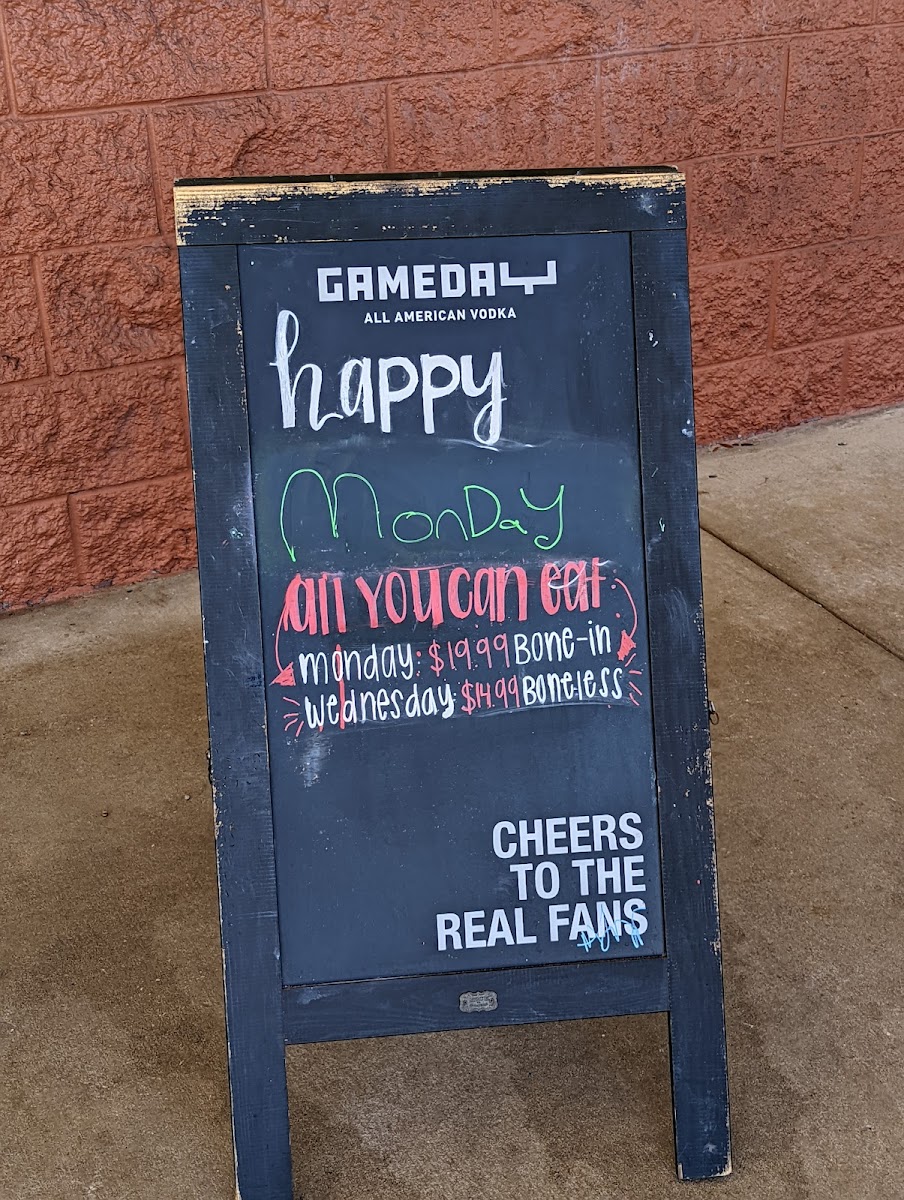 GAMEDAY
ALL AMERICAN VODKA
happy
MonDaY
all YOU can eat
monday: $19.99 Bone-in
wednesday: $14.99 Boneless
CHEERS
TO THE
REAL FANS